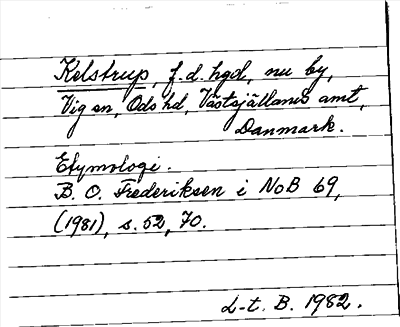 Kelstrup, f.d. hgd, nu by,
Vig sn, Ods hd, Västsjällands amt,
Danmark.
Etymologi.
B. O. Frederiksen i NoB 69,
(1981), s. 52, 70.
L-t. B. 1982.